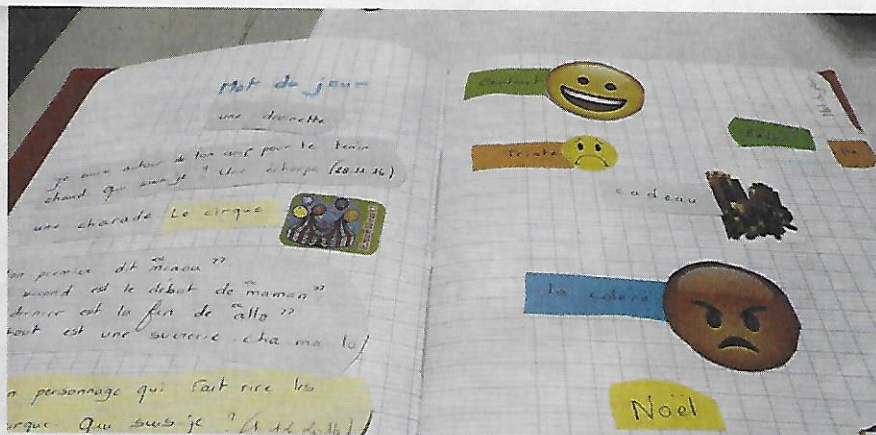 Mot de jeu
une devinette
je suis autour de ton cou pour te tenir
chaud Qui suis-je ? Une écharpe (28.11.16)
une charade Le cirque
on premier dit "miaou"
second est le début de "maman"
dernier est la fin de "allo"
tout est une sucrerie cha ma lo)
n personnage qui fait rire les
irque. Qui suis-je ?
content
triste
cadeau
la colère
Noël